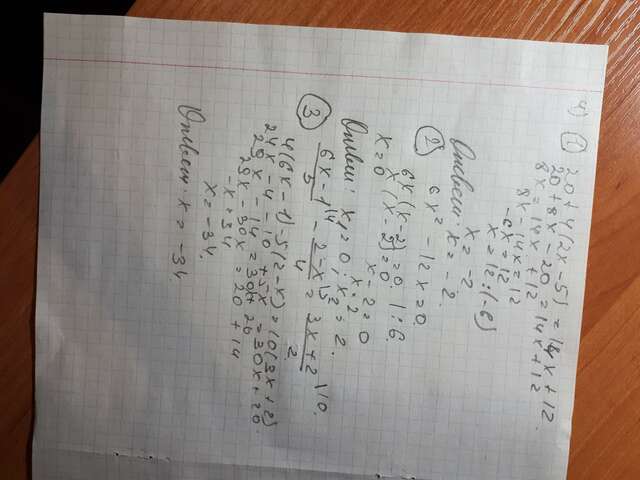 4) ① 20 + 4(2x-5) = 14x + 12
20 + 8x - 20 = 14x + 12
8x = 14x + 12
8x - 14x = 12
-6x = 12
x = 12:(-6)
x = -2
Ответ: x = -2.
② 6x² - 12x = 0.
6x(x-2) = 0. | : 6
x(x-2) = 0
x = 0 x - 2 = 0
x = 2
Ответ: x₁ = 0; x₂ = 2.
③ 6x-1\4 / 5 - 2-x\5 / 4 = 3x+2\10 / 2
4(6x-1) - 5(2-x) = 10(3x+2)
24x - 4 - 10 + 5x = 30x + 20
29x - 14 = 30x + 20
29x - 30x = 20 + 14
-x = 34
x = -34.
Ответ: x = -34